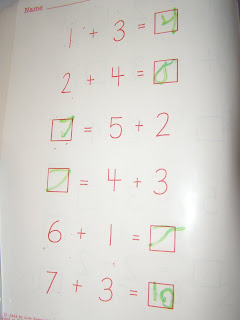 Name
1 + 3 = 4
2 + 4 =
7 = 5 + 2
= 4 + 3
6 + 1 =
7 + 3 = 10